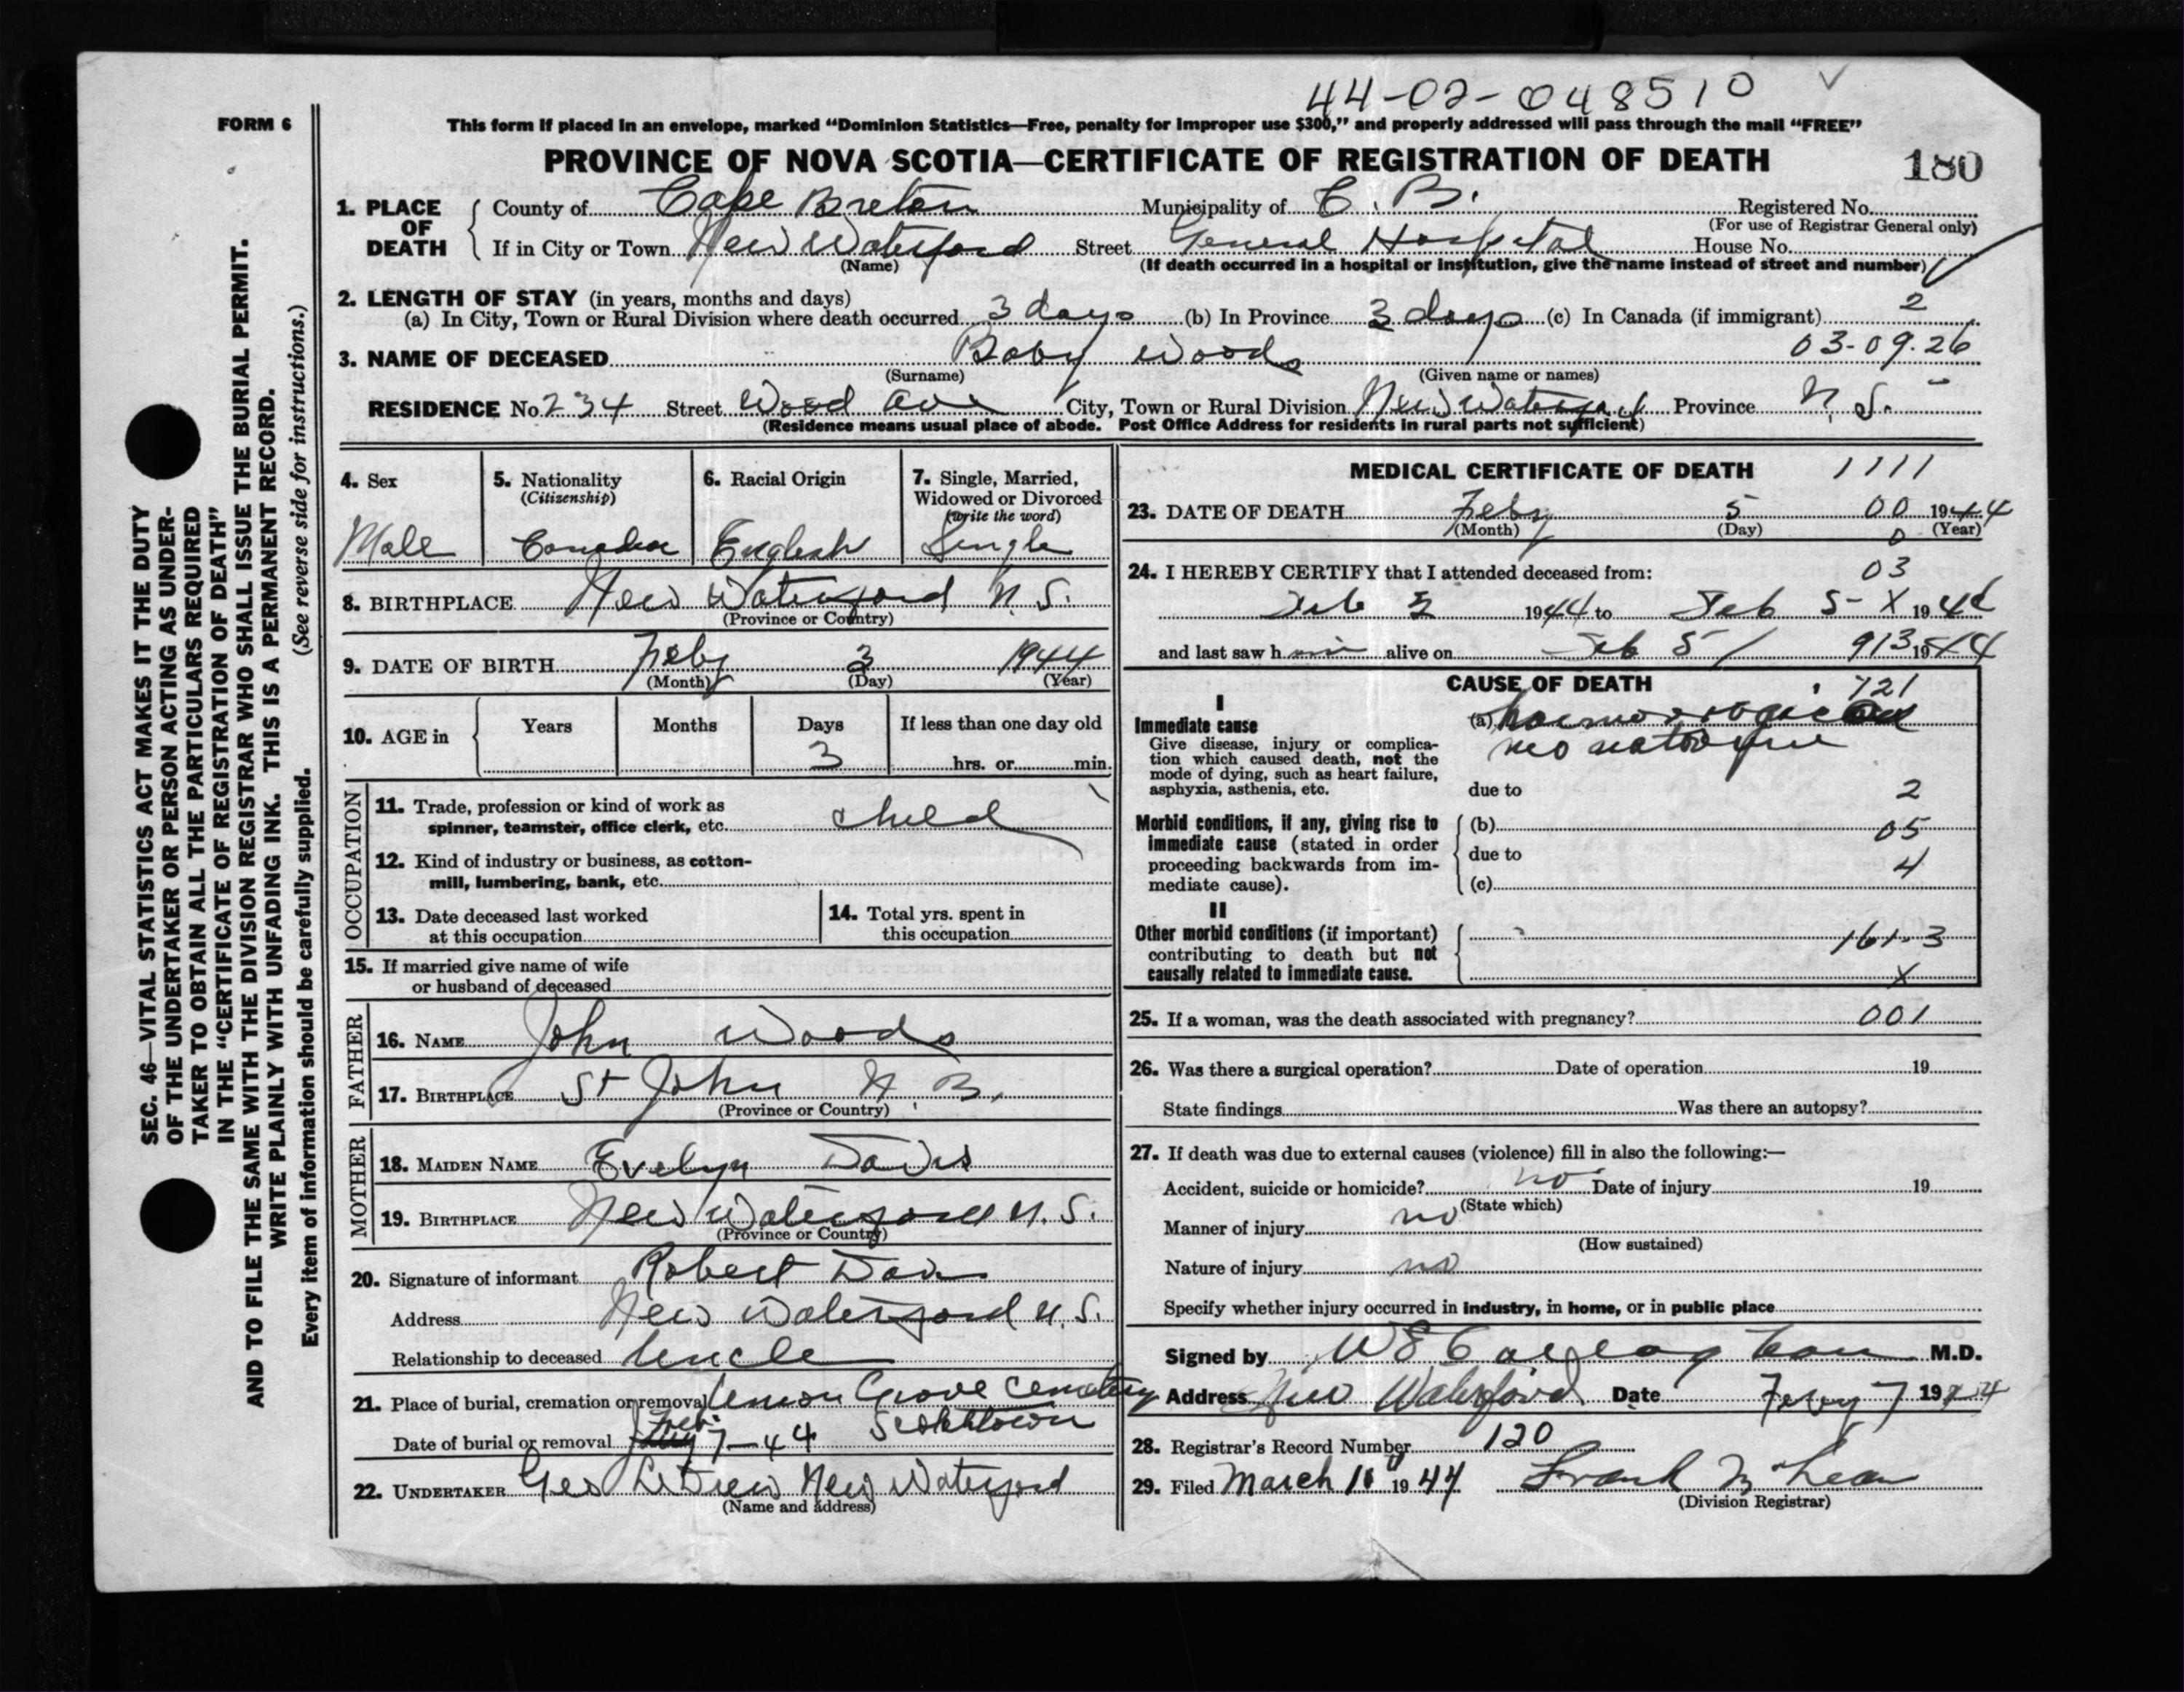 44-02-048510 ✓
FORM 6
This form if placed in an envelope, marked “Dominion Statistics—Free, penalty for improper use $300,” and properly addressed will pass through the mail “FREE”
PROVINCE OF NOVA SCOTIA—CERTIFICATE OF REGISTRATION OF DEATH 180
1. PLACE OF DEATH { County of Cape Breton Municipality of C. B. Registered No.
(For use of Registrar General only)
If in City or Town New Waterford Street General Hospital House No.
(Name) (If death occurred in a hospital or institution, give the name instead of street and number)
2. LENGTH OF STAY (in years, months and days)
(a) In City, Town or Rural Division where death occurred 3 days (b) In Province 3 days (c) In Canada (if immigrant) 2
3. NAME OF DECEASED Baby Woods 03-09-26
(Surname) (Given name or names)
RESIDENCE No. 234 Street Wood Ave City, Town or Rural Division New Waterford Province N. S.
(Residence means usual place of abode. Post Office Address for residents in rural parts not sufficient)
4. Sex 5. Nationality (Citizenship) 6. Racial Origin 7. Single, Married, Widowed or Divorced (write the word)
Male English Single
8. BIRTHPLACE New Waterford N. S.
(Province or Country)
9. DATE OF BIRTH Feby 3 1944
(Month) (Day) (Year)
10. AGE in { Years Months Days If less than one day old
3 hrs. or min.
OCCUPATION
11. Trade, profession or kind of work as
spinner, teamster, office clerk, etc. child
12. Kind of industry or business, as cotton-
mill, lumbering, bank, etc.
13. Date deceased last worked
at this occupation
14. Total yrs. spent in
this occupation
15. If married give name of wife
or husband of deceased
FATHER
16. NAME John Woods
17. BIRTHPLACE St John N. B.
(Province or Country)
MOTHER
18. MAIDEN NAME Evelyn Davis
19. BIRTHPLACE New Waterford N. S.
(Province or Country)
20. Signature of informant Robert Davis
Address New Waterford N. S.
Relationship to deceased Uncle
21. Place of burial, cremation or removal Grove Cemetery
Date of burial or removal Feb 7-44 Scotchtown
22. UNDERTAKER Geo New Waterford
(Name and address)
MEDICAL CERTIFICATE OF DEATH 1111
23. DATE OF DEATH Feby 5 00 1944
(Month) (Day) (Year)
0
24. I HEREBY CERTIFY that I attended deceased from: 03
Feb 1944 to Feb 5- X 1944
and last saw h im alive on Feb 5 / 913 1944
CAUSE OF DEATH 721
I
Immediate cause (a)
Give disease, injury or complica-
tion which caused death, not the
mode of dying, such as heart failure,
asphyxia, asthenia, etc.
due to 2
Morbid conditions, if any, giving rise to
immediate cause (stated in order
proceeding backwards from im-
mediate cause).
(b) 05
due to 4
(c)
II
Other morbid conditions (if important)
contributing to death but not
causally related to immediate cause.
161-3
X
25. If a woman, was the death associated with pregnancy? 001
26. Was there a surgical operation? Date of operation 19
State findings Was there an autopsy?
27. If death was due to external causes (violence) fill in also the following:—
Accident, suicide or homicide? no Date of injury 19
(State which)
Manner of injury no
(How sustained)
Nature of injury no
Specify whether injury occurred in industry, in home, or in public place
Signed by M.D.
Address New Waterford Date Febry 7 1944
28. Registrar's Record Number 120
29. Filed March 1944 Frank McLean
(Division Registrar)
SEC. 46—VITAL STATISTICS ACT MAKES IT THE DUTY
OF THE UNDERTAKER OR PERSON ACTING AS UNDER-
TAKER TO OBTAIN ALL THE PARTICULARS REQUIRED
IN THE “CERTIFICATE OF REGISTRATION OF DEATH”
AND TO FILE THE SAME WITH THE DIVISION REGISTRAR WHO SHALL ISSUE THE BURIAL PERMIT.
WRITE PLAINLY WITH UNFADING INK. THIS IS A PERMANENT RECORD.
Every item of information should be carefully supplied. (See reverse side for instructions.)